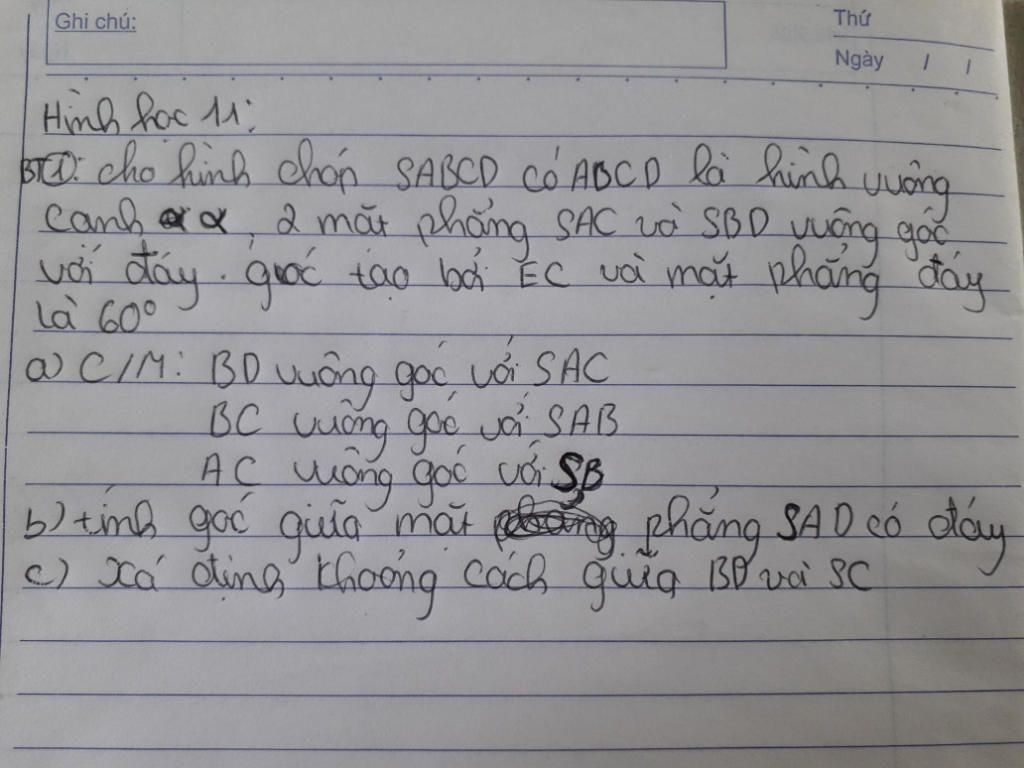 Ghi chú:
Thứ
Ngày / /
Hình học 11:
BT1: cho hình chóp SABCD có ABCD là hình vuông
cạnh α, 2 mặt phẳng SAC và SBD vuông góc
với đáy. góc tạo bởi EC và mặt phẳng đáy
là 60°
a) C/M: BD vuông góc với SAC
BC vuông góc với SAB
AC vuông góc với SB
b) tính góc giữa mặt phẳng SAD có đáy
c) xá định khoảng cách giữa BD và SC